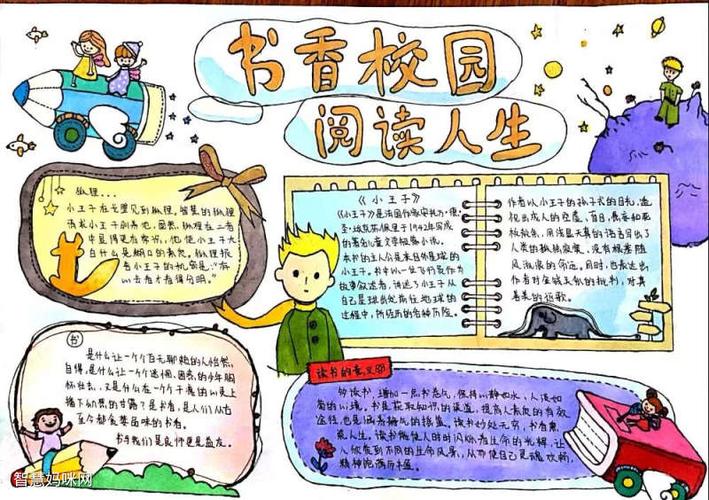 书香校园
阅读人生
狐狸...
小王子在花里见到狐狸。智慧的狐狸
请求小王子驯养他。虽然，狐狸在二者
中显得更有学识，他使小王子大
白什么是糊口的素质。狐狸报
告小王子的机密是："有
心去看才看得分明。"
《小王子》
《小王子》是法国作家安托万·德·
圣·埃克苏佩里于1942年写成
的著名儿童文学短篇小说。
本书的主人公是来自外星球的
小王子。书中以一位飞行员作为
故事叙述者，讲述了小王子从
自己星球出发前往地球的
过程中，所经历的各种历险。
作者以小王子的孩子式的目光，透
视出成人的空虚、盲目，愚妄和死
板教条，用浅显天真的语言写出了
人类的孤独寂寞、没有根基随
风流浪的命运。同时，也表达出
作者对金钱关系的批判，对真
善美的讴歌。
书
是什么让一个个百无聊赖的人怡然
自得，是什么让一个个迷惘、困惑的少年胸
怀壮志，又是什么在一个个干涸的心灵上
播下纯美的甘露？是书香，是人们从古
至今都食荖品味的书香。
书与我们是良师更是益友。
读书的意义
多读书，增加一点书卷气，保持心静如水，人淡如
菊的心境。书是获取知识的渠道，提高人素质的有效
途径，也是涵养静气的摇篮。读书妙处无穷，书香熏
熏人生。读书能使人时时闪烁着生命的光辉，让
人欣赏到不同的生命风景，从而使自己灵魂欢畅，
精神饱满而丰盈。
智慧妈咪网